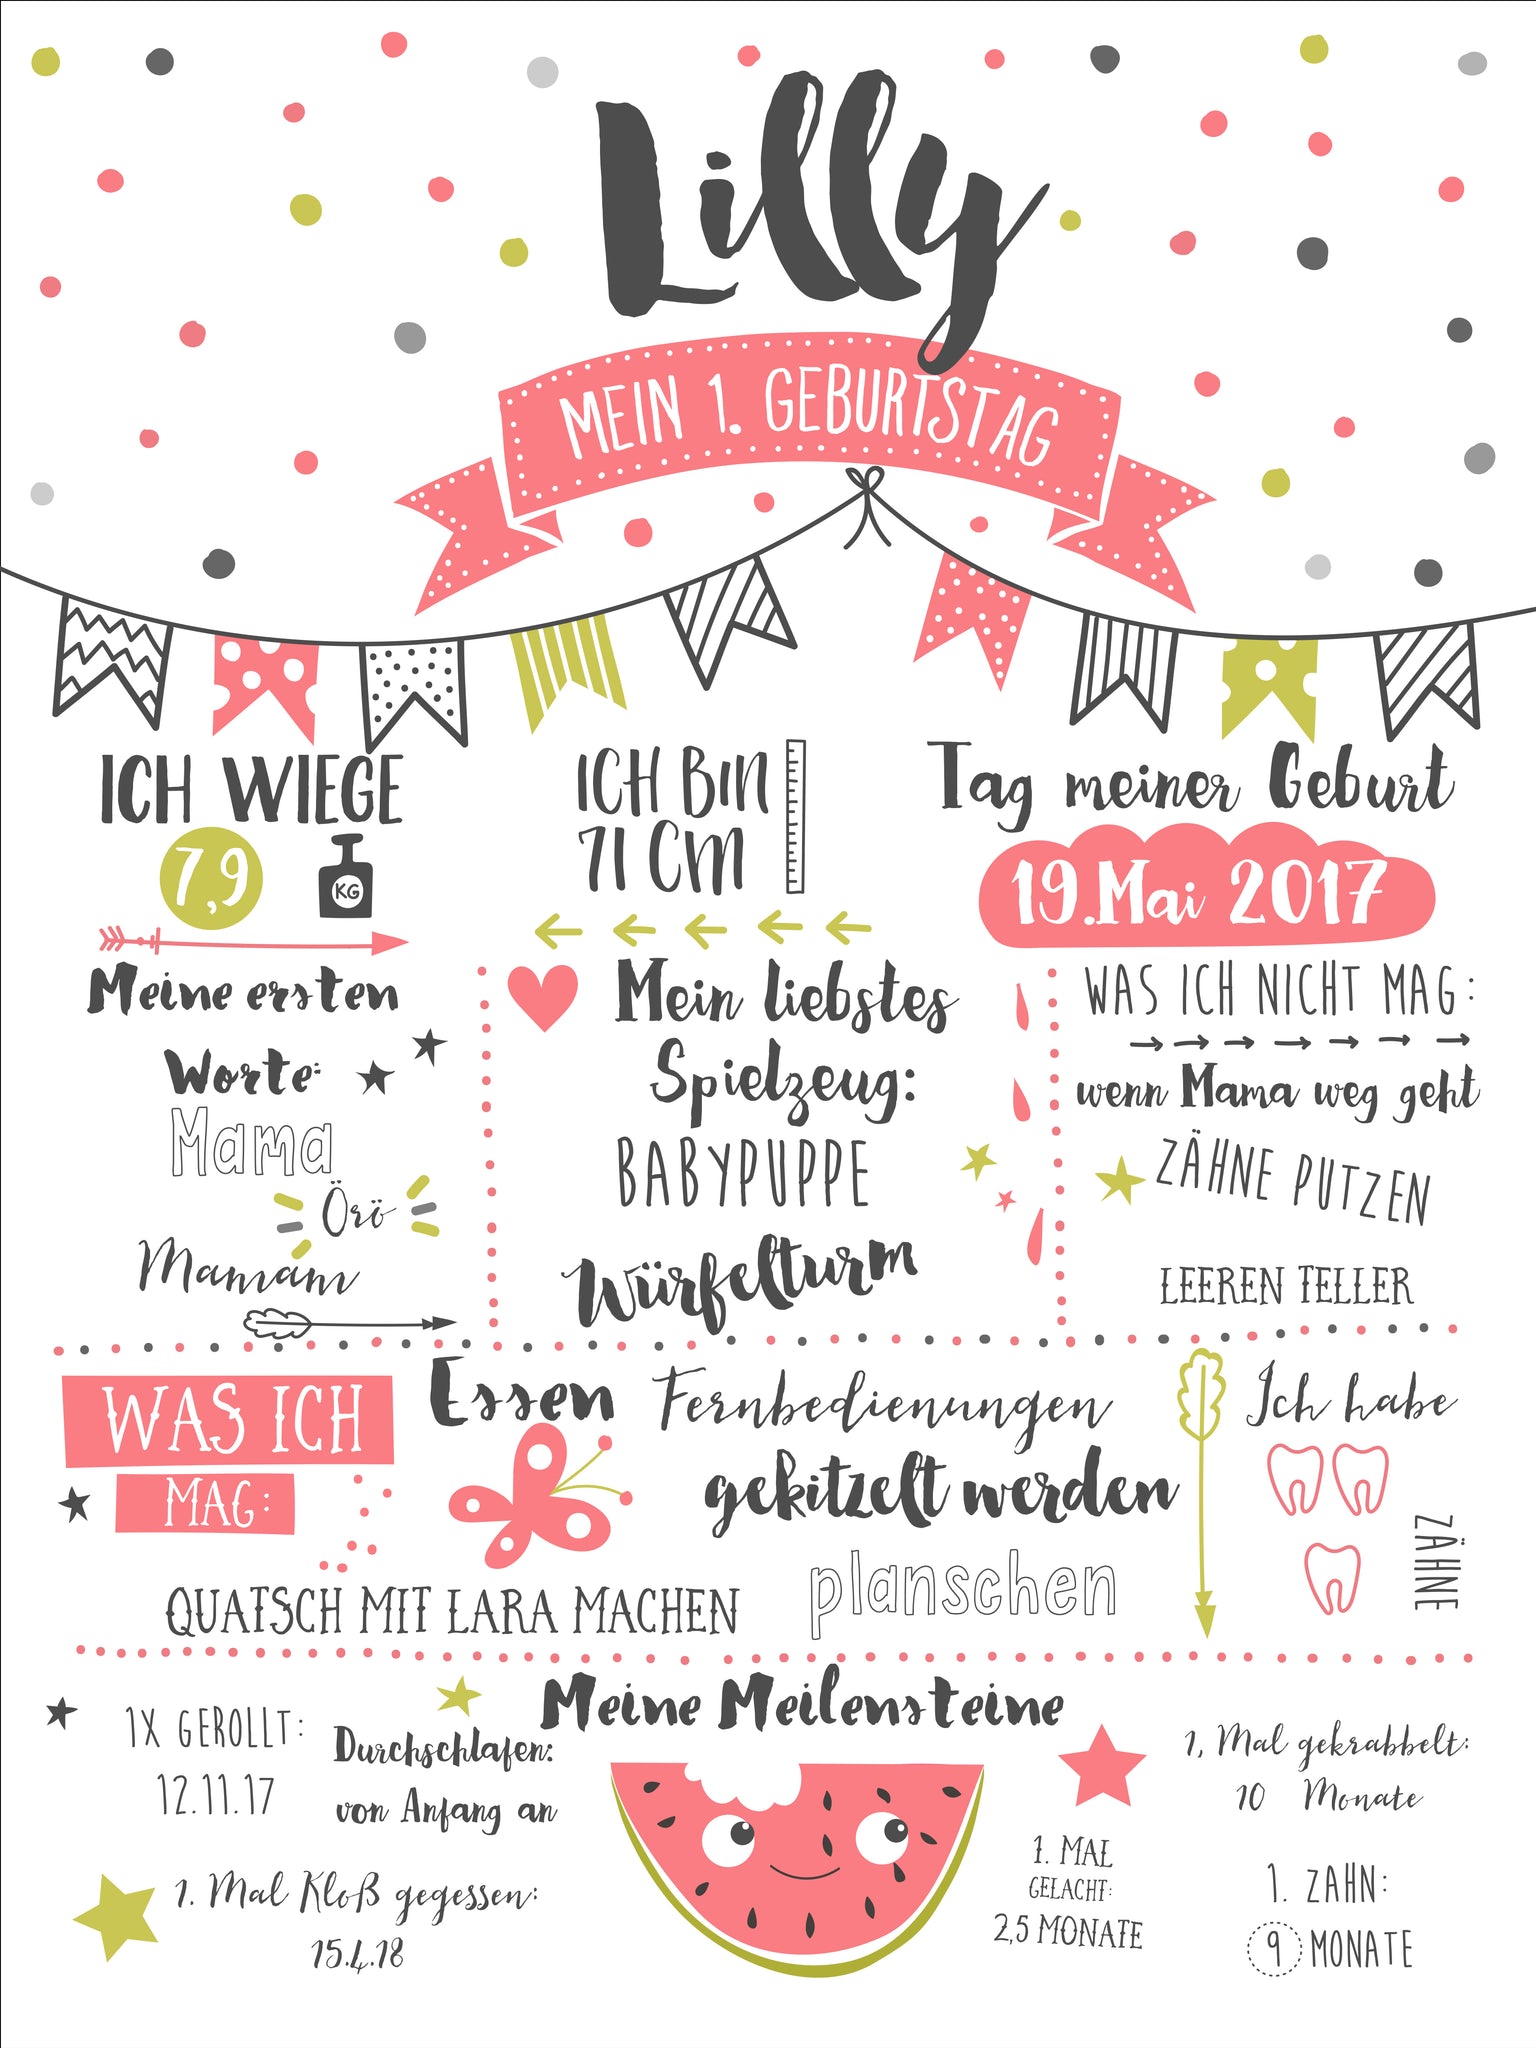 Lilly
MEIN 1. GEBURTSTAG
ICH WIEGE
7,9
KG
ICH BIN
71 CM
Tag meiner Geburt
19.Mai 2017
Meine ersten
Worte:
Mama
Örö
Mamam
Mein liebstes
Spielzeug:
BABYPUPPE
Würfelturm
WAS ICH NICHT MAG:
wenn Mama weg geht
ZÄHNE PUTZEN
LEEREN TELLER
WAS ICH
MAG:
Essen
Fernbedienungen
gekitzelt werden
QUATSCH MIT LARA MACHEN
planschen
Ich habe
ZÄHNE
Meine Meilensteine
1X GEROLLT:
12.11.17
Durchschlafen:
von Anfang an
1. Mal Kloß gegessen:
15.4.18
1. MAL
GELACHT:
2,5 MONATE
1, Mal gekrabbelt:
10 Monate
1. ZAHN:
9 MONATE